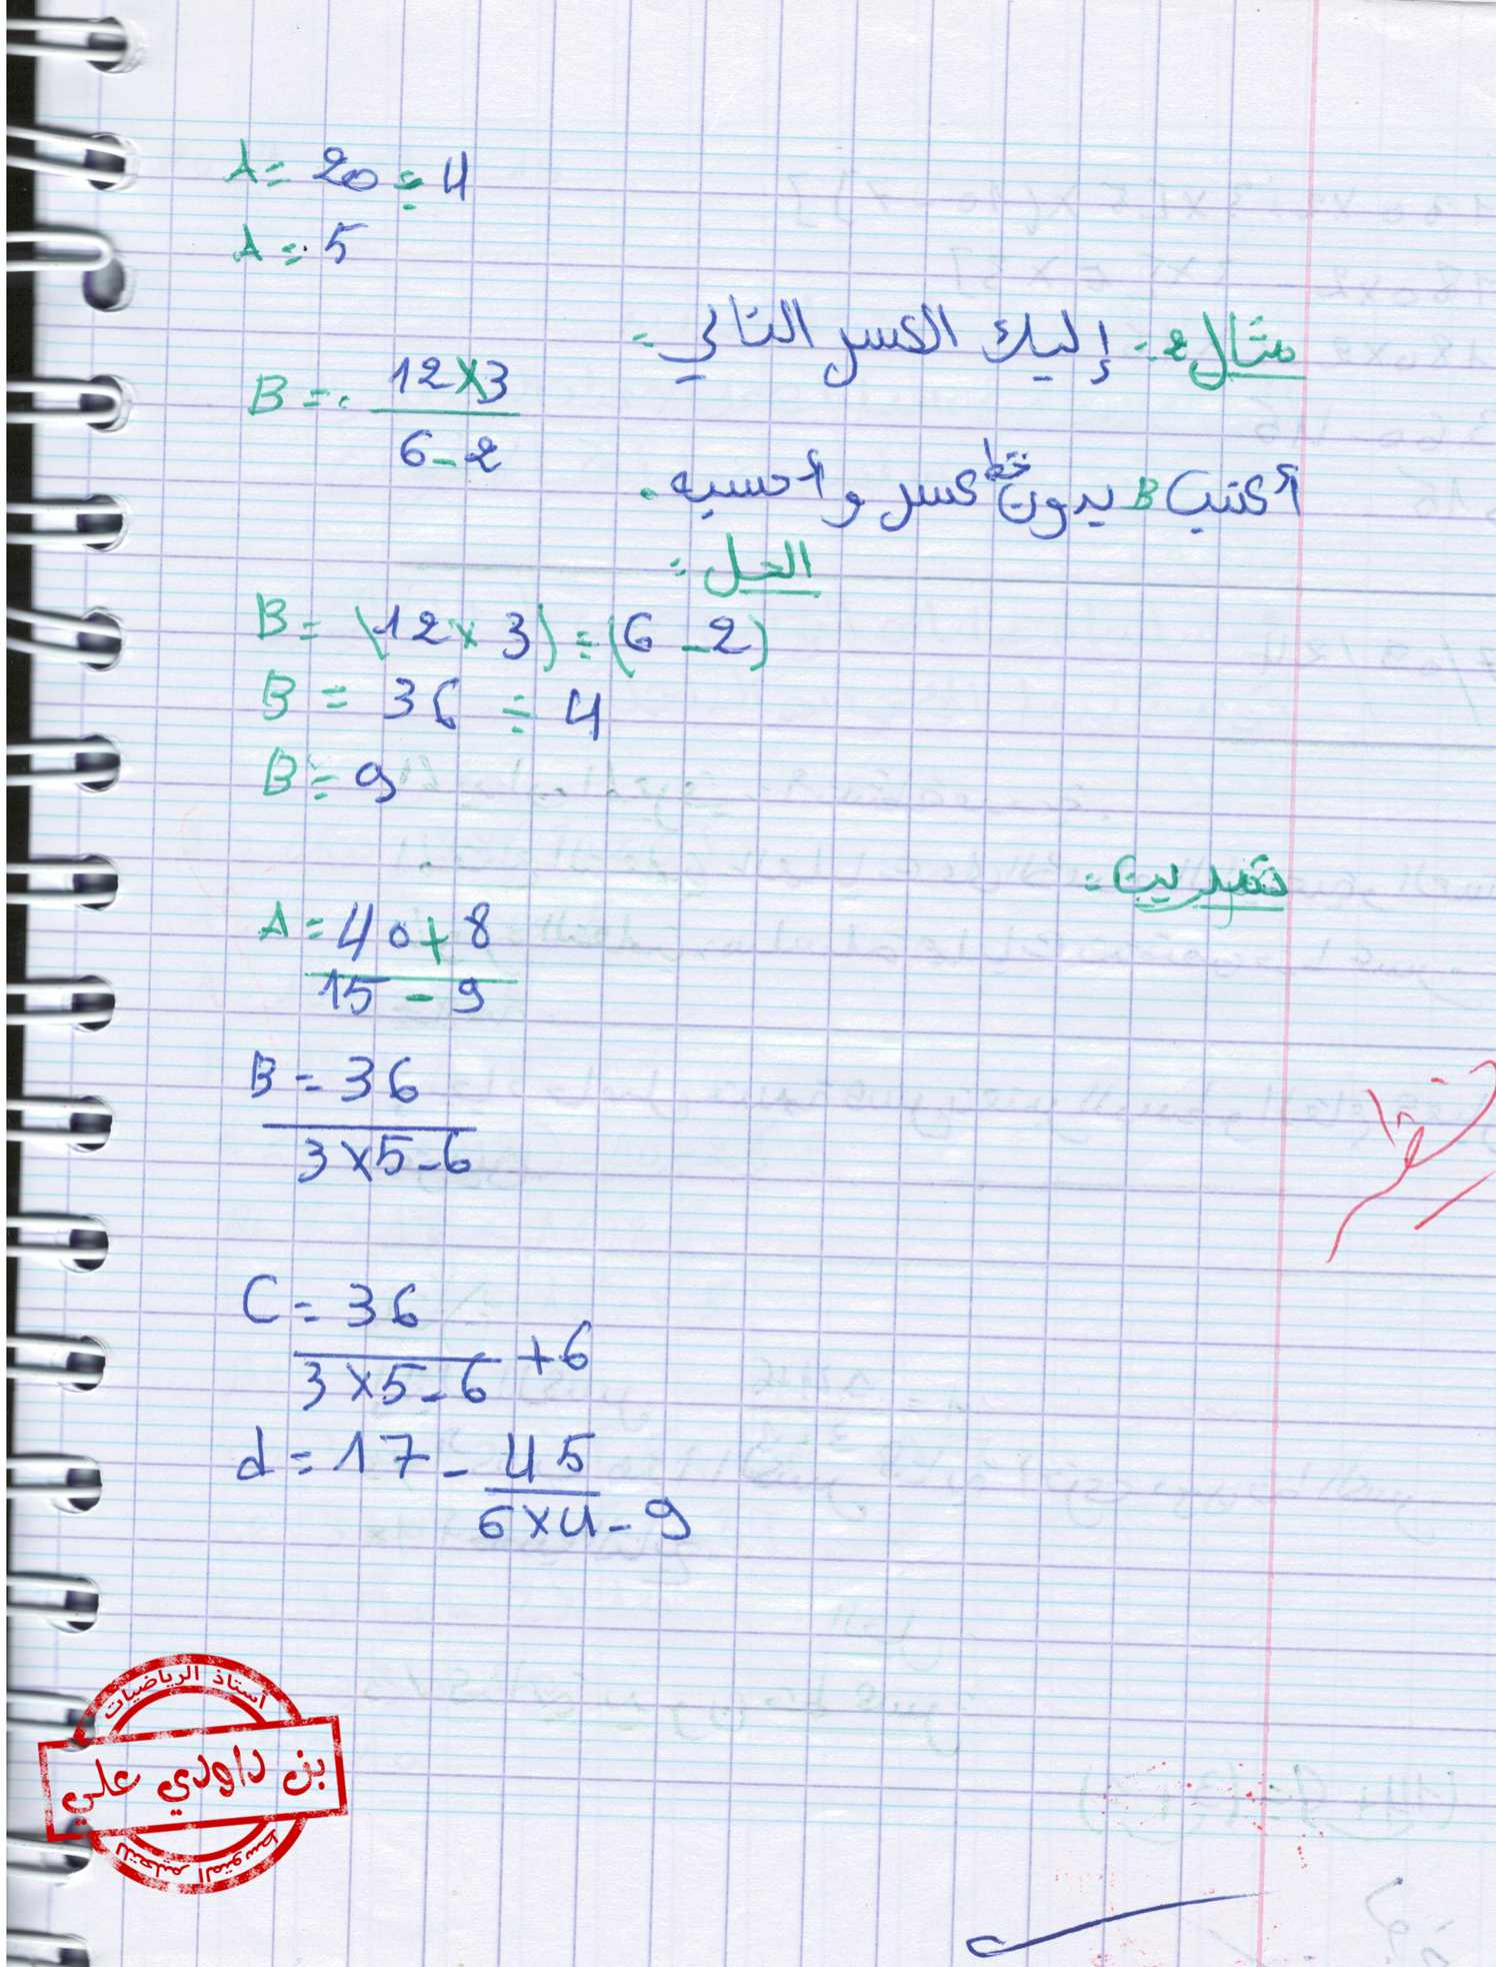 A = 20 ÷ 4
A = 5
مثال2: إليك الكسر التالي:
B = 12×3
6-2
أكتب B بدون خط كسر و أحسبه.
الحل:
B = (12 × 3) ÷ (6 - 2)
B = 36 ÷ 4
B = 9
تدريب:
A = 40 + 8
15 - 9
B = 36
3 × 5 - 6
C = 36
3 × 5 - 6 + 6
d = 17 - 45
6 × 4 - 9
أستاذ الرياضيات
بن داودي علي
للتعليم المتوسط